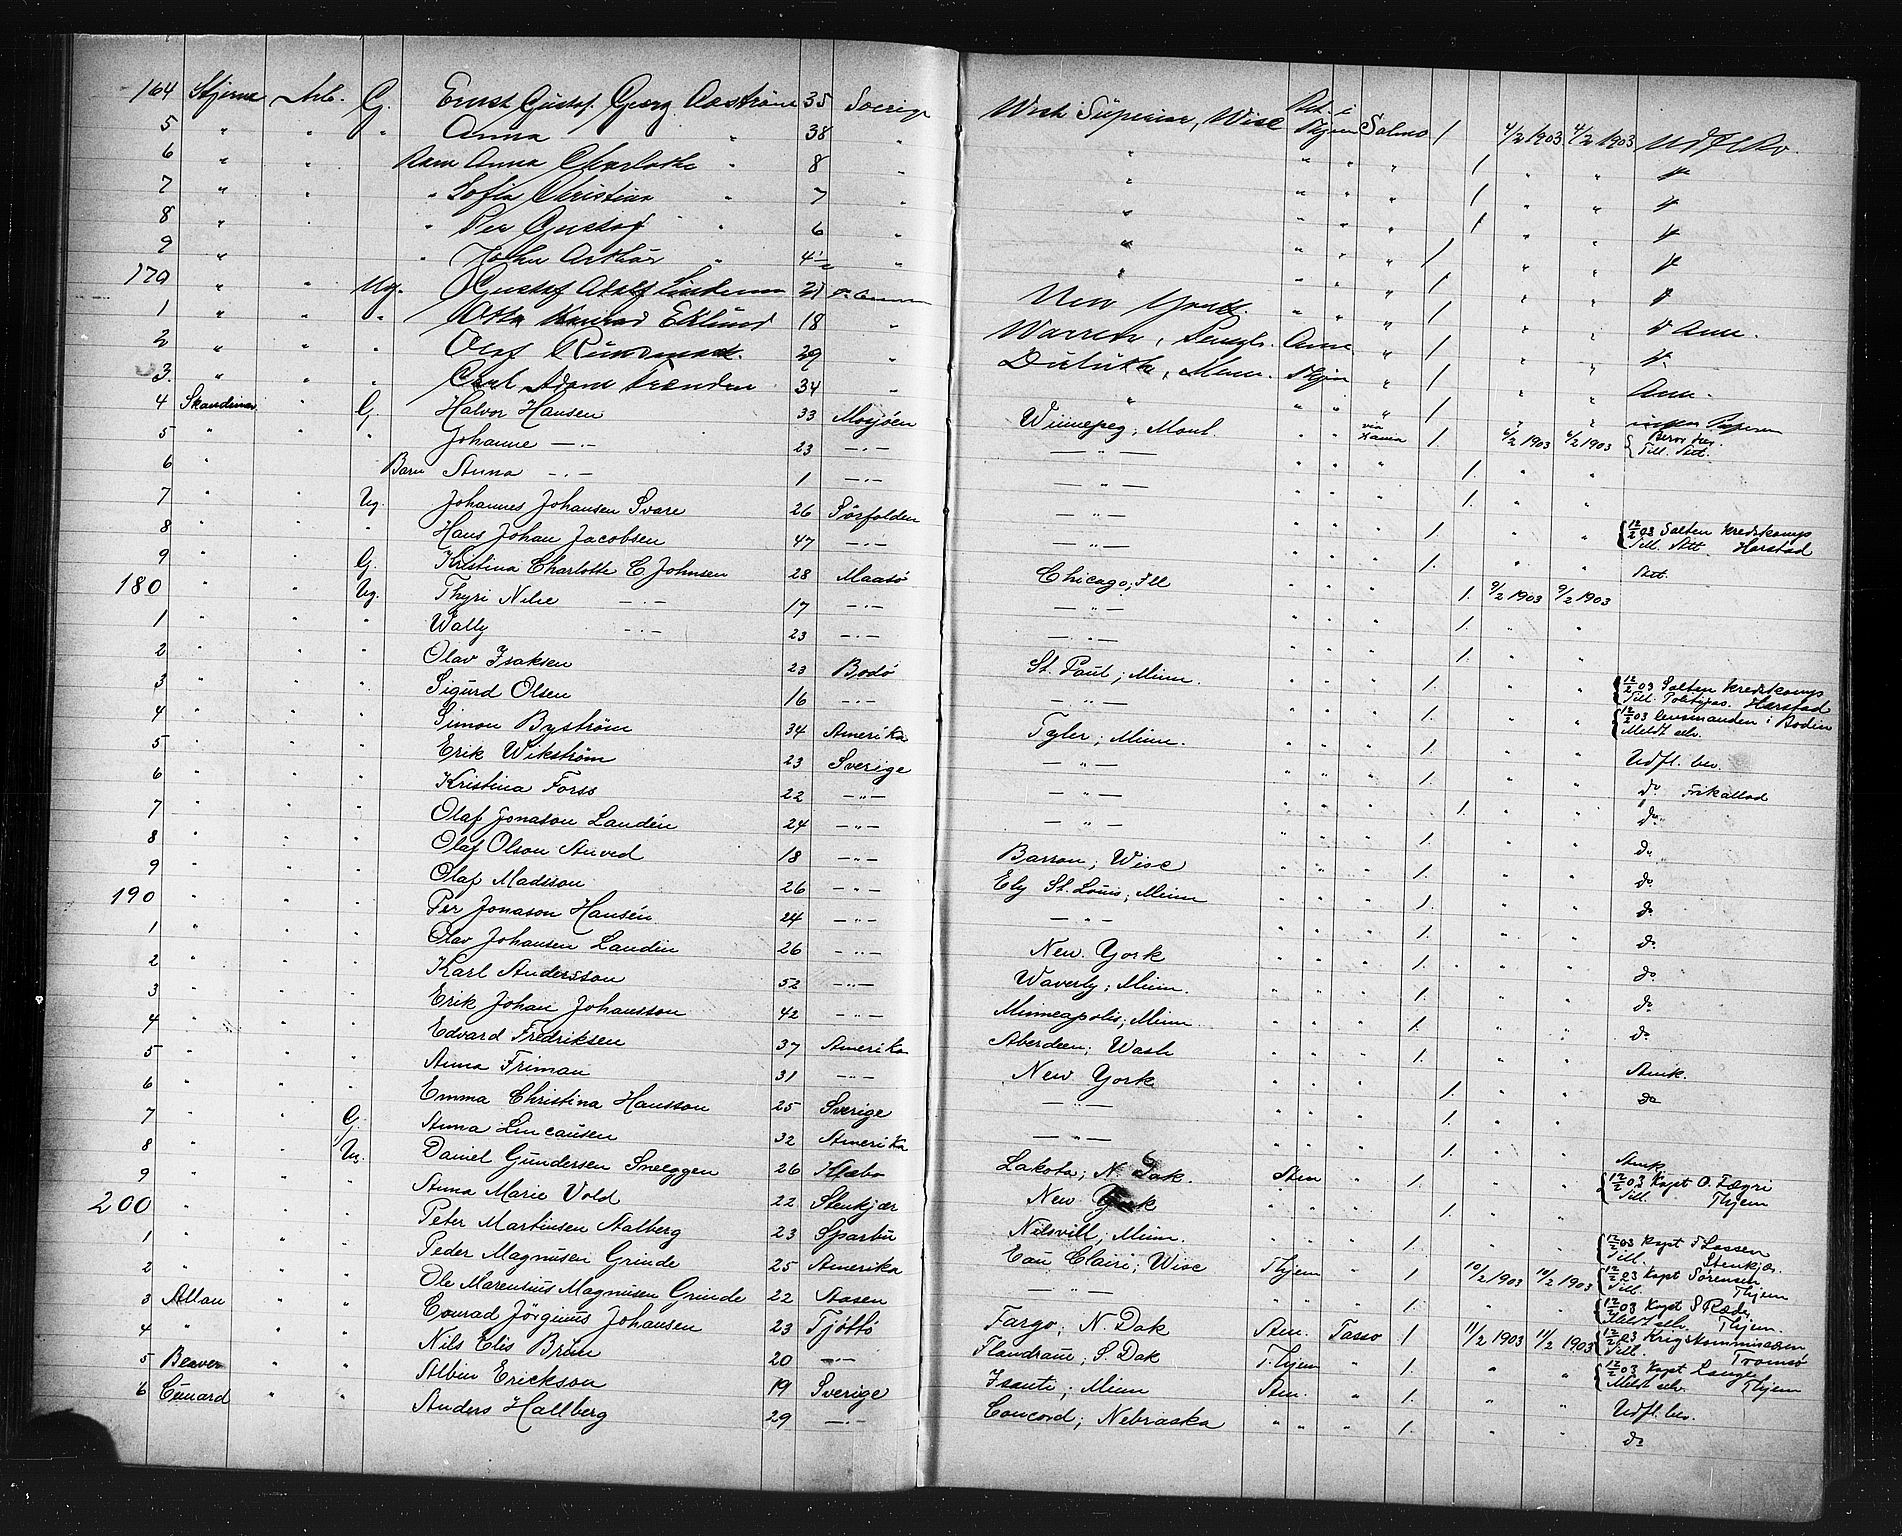 164 Stjerna Arb. G. Ernst Gustaf Georg Aaström 35 Sverige West Superior, Wisc Bet. i Thjem Salmo 1 4/2 1903 4/2 1903 Udfl Bev.
5 " " " Anna " 38 " " " " " 1 " " do
6 " Barn Anna Charlotte " 8 " " " " " 1 " " do
7 " " Sofia Christina " 7 " " " " " 1 " " do
8 " " Per Gustaf " 6 " " " " " 1 " " do
9 " " John Arthur " 4½ " " " " " 1 " " do
170 " " Ug. Gustaf Adolf 21 New York " " " 1 " " do Am.
1 " " " Otto Konrad Eklund 18 " Warren, Pensylv. Am. " 1 " " do
2 " " " Olaf 29 " Duluth, Minn. Thjem " 1 " " Am.
3 " " " Carl Adam 34 " " " " " 1 " "
4 Skandinav " G. Halvor Hansen 33 Mosjöen Winnepeg; Mont. " " via Xania 1. 6/2 1903 6/2 1903 Till. Att.
5 " " " Johanne —"— 23 —"— —"— " " " 1. " "
6 " Barn Anna —"— 1 —"— —"— " " " 1. " "
7 " " Ug. Johannes Johansen Svare 26 Sörfolden —"— " " " 1. " " 12/2 03 Salten Kredskomp Till. Att. Harstad
8 " " " Hans Johan Jacobsen 47 —"— —"— " " " 1. " " Att.
9 " " G. Kristina Charlotte C Johnsen 28 Maasö Chicago; Ill " " " 1. 9/2 1903 9/2 1903
180 " " Ug. Thyri Nilse —"— 17 —"— —"— " " " 1. " "
1 " " " Wally —"— 23 —"— —"— " " " 1. " "
2 " " " Olav Isaksen 23 Bodö St. Paul; Minn. " " " 1. " " 12/2 03 Salten Kredskomp Till. Politipas. Harstad
3 " " " Sigurd Olsen 16 —"— —"— " " " 1. " " 12/2 03 Lensmanden i Bodin Meldt selv.
4 " " " Simon Byström 34 Amerika Tyler; Minn. " " " 1. " " Udfl. bev.
5 " " " Erik Wikström 23 Sverige —"— " " " 1. " " do Frikallad
6 " " " Kristina Forss 22 —"— —"— " " " 1. " " do
7 " " " Olaf Jonason Landén 24 —"— —"— " " " 1. " " do
8 " " " Olaf Olson Anved 18 —"— Barron; Wisc " " " 1. " " do
9 " " " Olaf Madsson 26 —"— Ely St. Louis; Minn " " " 1. " " do
190 " " " Per Jonason Hansén 24 —"— —"— " " " 1. " " do
1 " " " Olav Johansen Landin 26 —"— New York " " " 1. " " do
2 " " " Karl Andersson 52 —"— Waverly; Minn. " " " 1. " " do
3 " " " Erik Johan Johansson 42 —"— Minneapolis; Minn " " " 1. " " do
4 " " " Edvard Fredriksen 37 Amerika Aberdeen; Wash " " " 1. " " Amk.
5 " " " Anna Friman 31 —"— New York " " " 1. " " do
6 " " " Emma Christina Hansson 25 Sverige —"— " " " 1. " "
7 " " G. Anna Lincausen 32 Amerika —"— " " " 1. " " Amk
8 " " Ug. Daniel Gundersen Sneeggen 26 Klæbo Lakota; N. Dak. Sten " " 1. " " 12/2 03 Kapt O. Fægri Till. Thjem
9 " " " Anna Marie Vold 22 Stenkjær New York " " " 1. " "
200 " " " Peter Martinsen Aalberg 23 Sparbu Nilsvill; Minn. " " " 1. " " 12/2 03 Kapt F Lassen Till. Stenkjær.
1 " " " Peder Magnusen Grinde 25 Amerika Eau Claire; Wisc Thjem " 1. 10/2 1903 10/2 1903 12/2 03 Kapt Sörensen Till. Thjem
2 " " " Ole Marentius Magnusen Grinde 22 Aasen —"— " " " 1. " " 12/2 03 Kapt S Rædy Meldt selv. Thjem.
3 Allan " " Conrad Jörginus Johansen 23 Tjöttö Fargo; N. Dak Am. Tasso 1. 11/2 1903 11/2 1903 12/2 03 Krigskommissæren Till. Tromsö
4 " " " Nils Elis Brun 20 —"— Flandrau; S. Dak Thjem " 1. " " 12/2 03 Kapt Lange Meldt selv. Thjem
5 Beaver " " Albin Erickson 19 Sverige Isanti; Minn Am. " 1. " " Udfl. bev.
6 Cunard " " Anders Hallberg 29 —"— Concord; Nebraska " " " 1. " " do